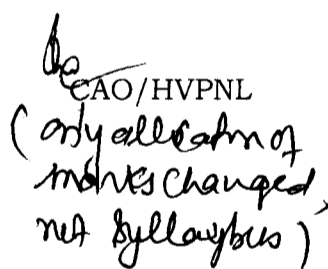 CAO/HVPNL
(only allocation of
marks changed
not syllaybus)